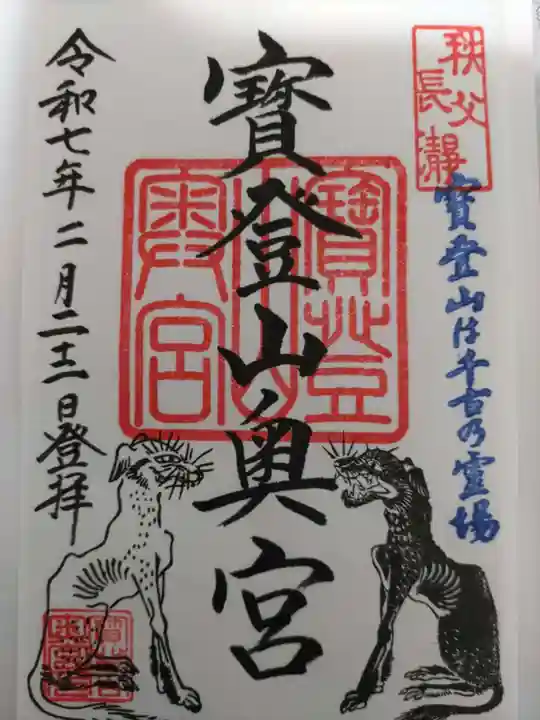 秩父
長瀞
寳登山は千古の霊場
寳登山奥宮
寳登山奥宮
令和七年二月二十二日登拝